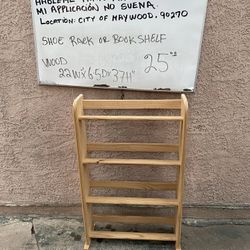 MI APPLICACIÓN NO SUENA.
LOCATION: CITY OF MAYWOOD. 90270
SHOE RACK OR BOOKSHELF
WOOD 25
22WX6.5DX37H"